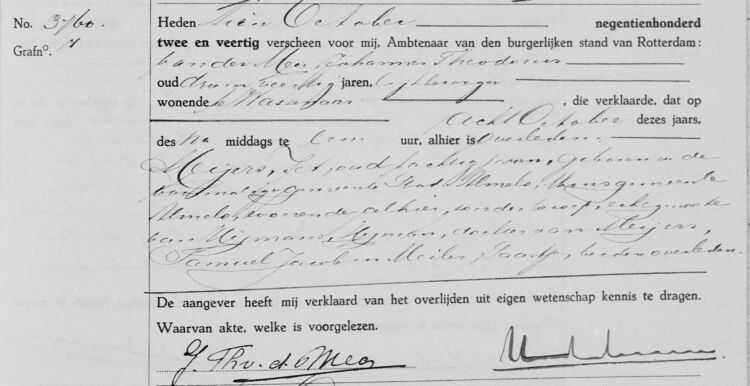 No. 3760.
Grafno. 7
Heden Tien October negentienhonderd
twee en veertig verscheen voor mij, Ambtenaar van den burgerlijken stand van Rotterdam:
van der Meer, Johannes Theodorus
oud veertig jaren,
wonende te Wassenaar, die verklaarde, dat op
acht October dezes jaars,
des na middags te een uur, alhier is overleden:
Meijers, oud tachtig jaren, geboren in de
voormalige gemeente Stad Almelo, thans gemeente
Almelo, wonende alhier, zonder beroep, echtgenoote
van Nijman, dochter van Meijers,
Samuel Jacob en Meiler, beiden overleden.
De aangever heeft mij verklaard van het overlijden uit eigen wetenschap kennis te dragen.
Waarvan akte, welke is voorgelezen.
J. Th. v. d. Meer